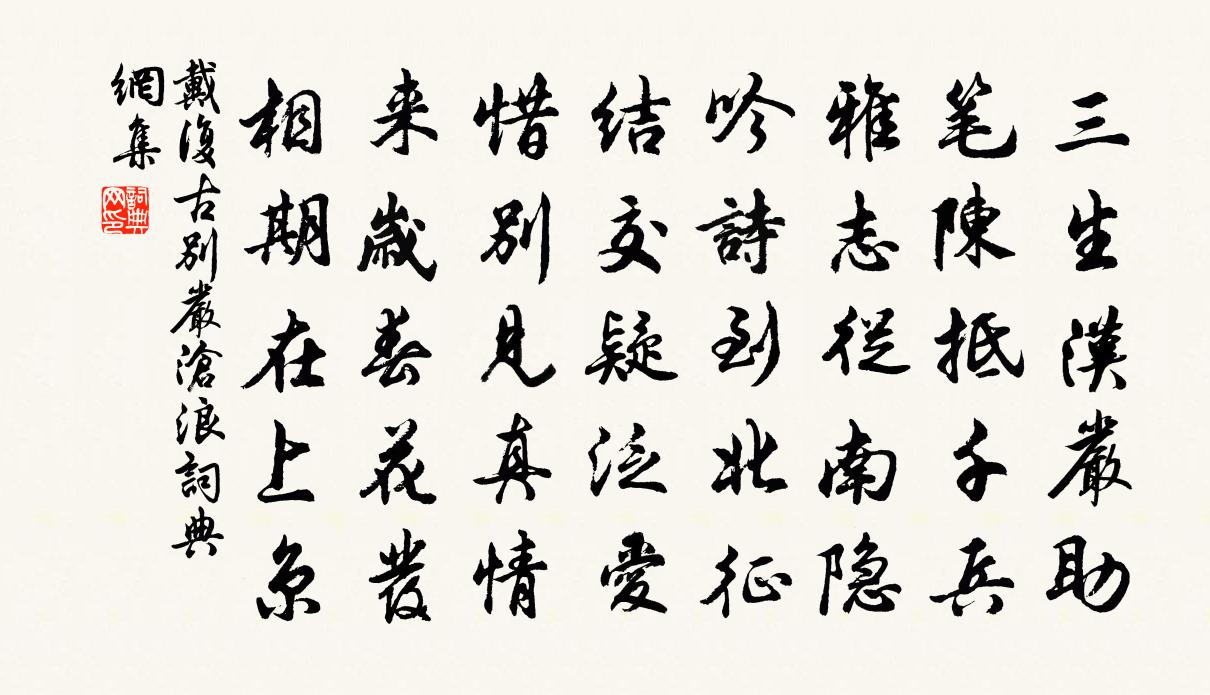 三生漢嚴助
笔陳抵千兵
雅志從南隐
吟詩到北征
结交疑泛愛
惜别見真情
来歲春花發
相期在上京
戴復古别嚴滄浪詞典
網集
詞典网印